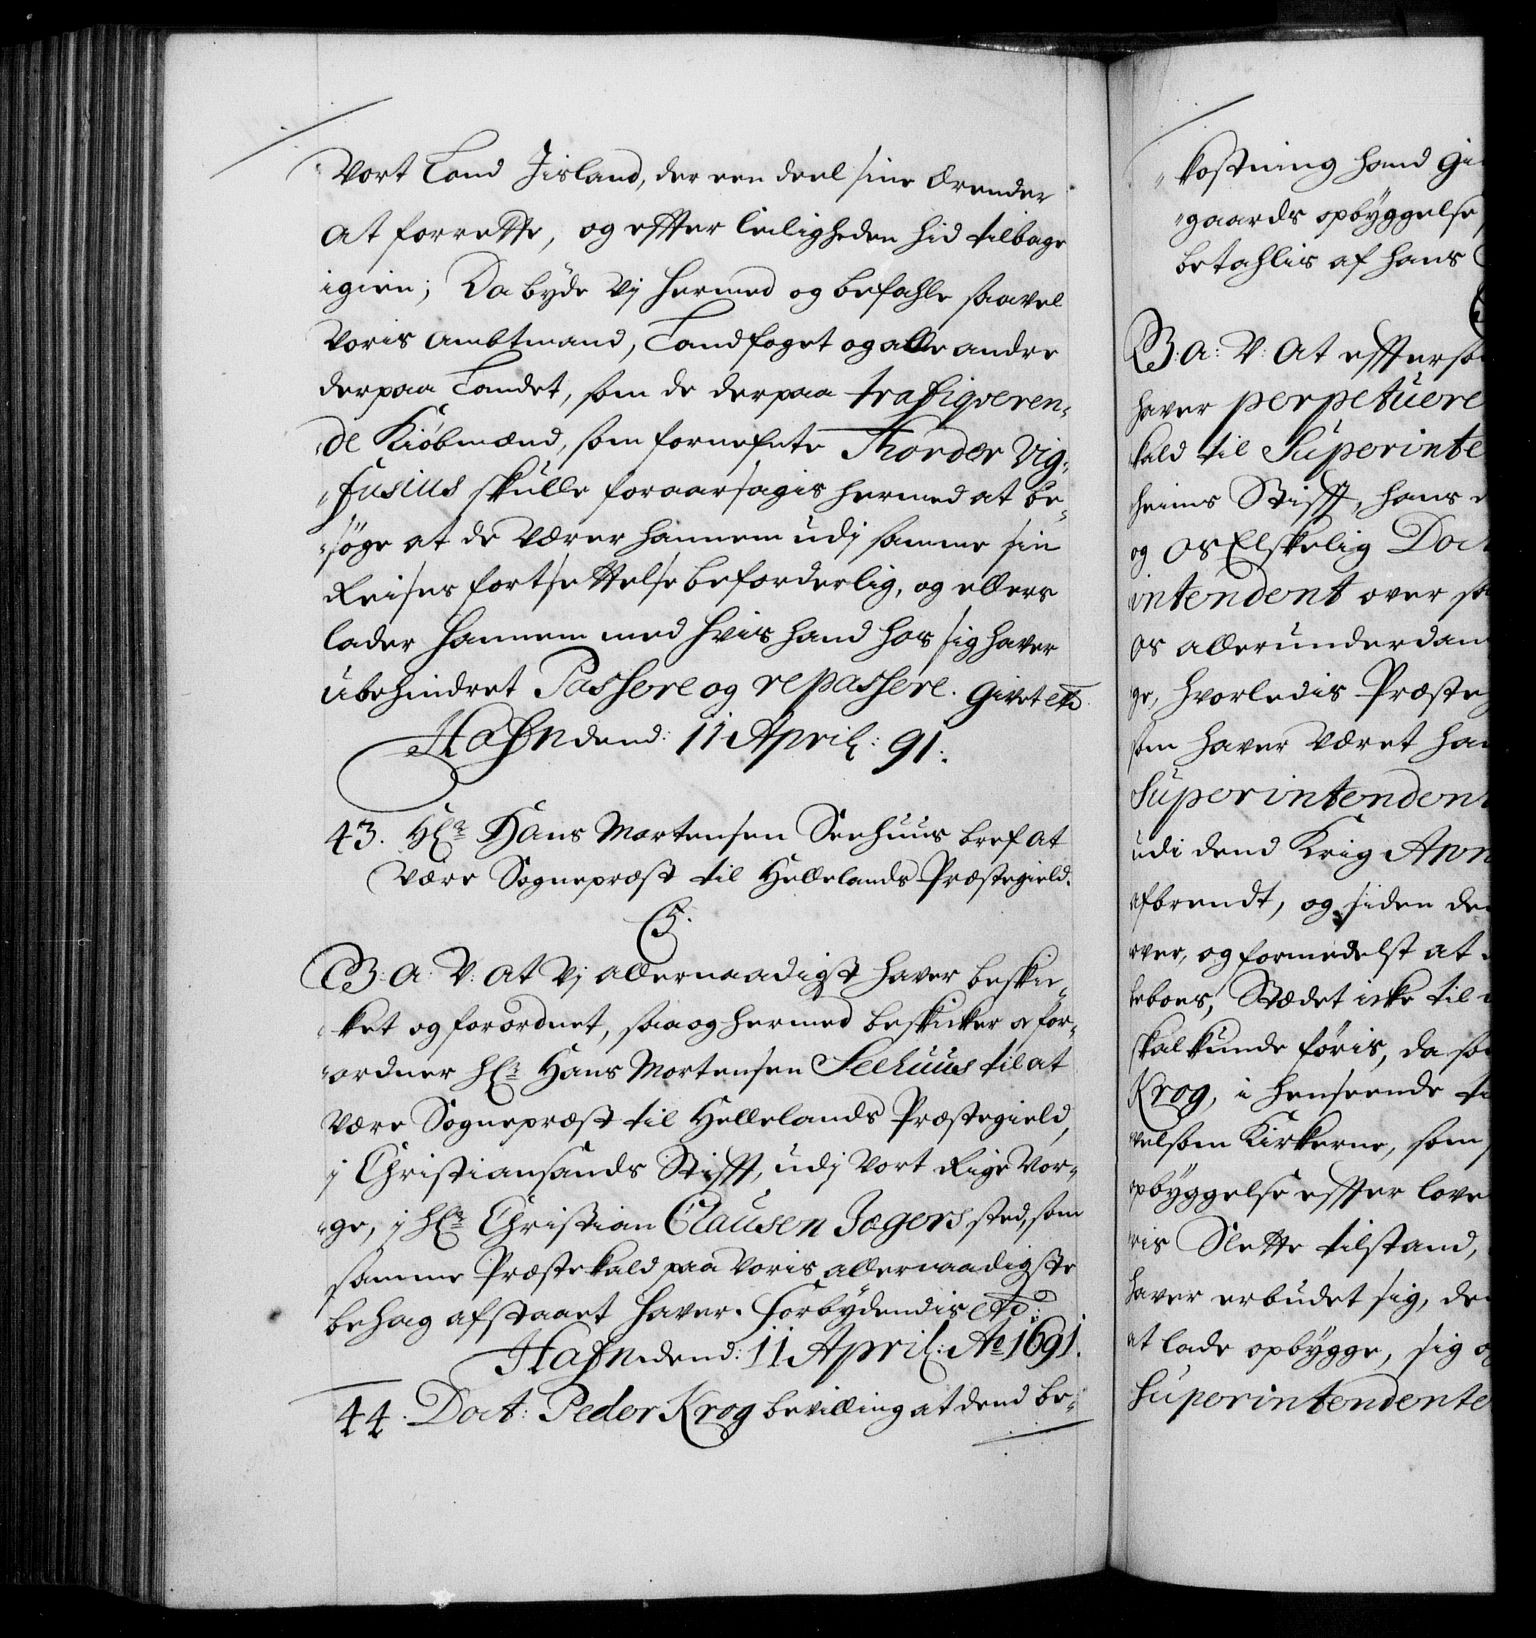 Vort Land Jisland, der een deel sine Ærender
at forrette, og effter leiligheden hid tilbage
igien; Da byde Vj hermed og befahle saavel
Voris Ambtmand, Landfoget og alle andre
derpaa Landet, som de derpaa trafiqveren-
de Kiøbmænd, som fornefnte Thorder Vig-
fusius skulle foraarsagis hermed at be-
søge at de værer hannem udj samme sin
Reises fortsettelse beforderlig, og ellers
lader hannem med hvis hand hos sig haver
ubehindret Passere og repassere. Givet etc
Hafn dend: 11 April: 91:
43. Hr: Hans Mortensen Seehuus bref at
være Sogneprest til Hellelands Præstegield.
C5.
G: A: V: At Vj allernaadigst haver beskic-
ket og forordnet, saa og hermed beskicker og for-
ordner Hr: Hans Mortensen Seehuus til at
være Sogneprest til Hellelands Præstegield,
j Christiansands Stifft, udj Vort Rige Nor-
ge, j Hr: Christian Clausen Jægers sted, som
samme Præstekald paa Voris allernaadigste
behag afstaaet haver. Forbydendis etc:
Hafn dend: 11 April: Ao 1691.
44. Doct: Peder Krog bevilling at dend be-
kostning hand gi
gaards opbyggelse
betahlis af hans
G: A: V: At effterso
haver perpetuere
kald til Superinte
heims Stifft, hans
og Os Elskelig Doct
intendent over sa
Os allerunderdan
ge, hvorledis Præsteg
som haver været ha
Superintendent
udi dend Krig Ann
afbrendt, og siden de
rver, og formedelst at
leboes, Stædet icke til
skal kunde føris, da sa
Krog, i henseende ti
velsom Kirkerne, som
opbyggelse effter love
ris Slette tilstand,
haver erbudet sig, de
at lade opbygge, sig o
Superintendente